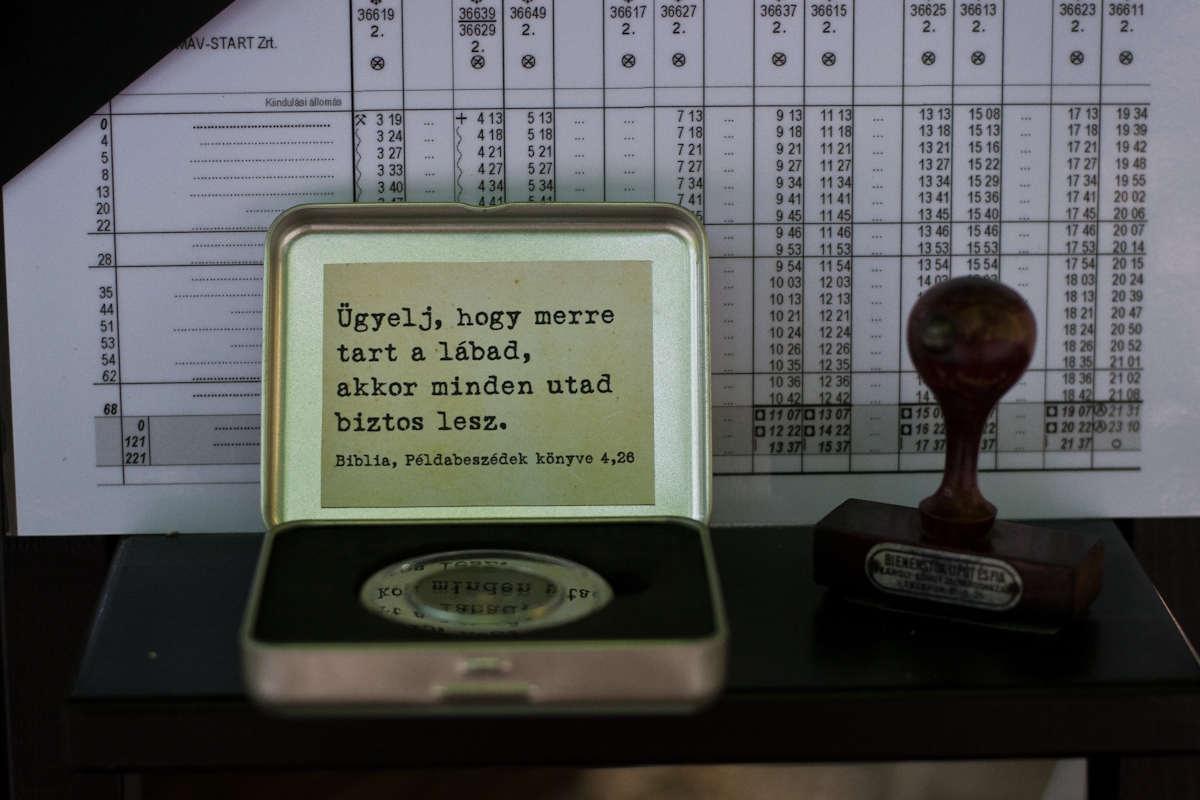 36619 36639 36649 36617 36627 36637 36615 36625 36613 36623 36611
36629
2. 2. 2. 2. 2. 2. 2. 2. 2. 2. 2.
MÁV-START Zrt.
Kiindulási állomás
0 3 19 ... 4 13 5 13 ... ... 7 13 ... 9 13 11 13 ... 13 13 15 08 ... 17 13 19 34
4 3 24 4 18 5 18 7 18 9 18 11 18 13 18 15 13 17 18 19 39
5 3 27 ... 4 21 5 21 ... ... 7 21 ... 9 21 11 21 ... 13 21 15 16 ... 17 21 19 42
8 3 33 4 27 5 27 7 27 9 27 11 27 13 27 15 22 17 27 19 48
13 3 40 ... 4 34 5 34 ... ... 7 34 ... 9 34 11 34 ... 13 34 15 29 ... 17 34 19 55
20 4 41 5 41 9 41 11 41 13 41 15 36 17 41 20 02
22 9 45 11 45 ... 13 45 15 40 ... 17 45 20 06
9 46 11 46 13 46 15 46 17 46 20 07
28 9 53 11 53 ... 13 53 15 53 ... 17 53 20 14
9 54 11 54 13 54 15 54 17 54 20 15
35 10 03 12 03 18 03 20 24
44 10 13 12 13 18 13 20 39
51 10 21 12 21 18 21 20 47
53 10 24 12 24 18 24 20 50
54 10 26 12 26 18 26 20 52
62 10 35 12 35 18 35 21 01
10 36 12 36 18 36 21 02
68 10 42 12 42 18 42 21 08
0 11 07 13 07 19 07 21 31
121 12 22 14 22 16 22 20 22 23 10
221 13 37 15 37 17 37 21 37
Ügyelj, hogy merre
tart a lábad,
akkor minden utad
biztos lesz.
Biblia, Példabeszédek könyve 4,26
minden
lábad,